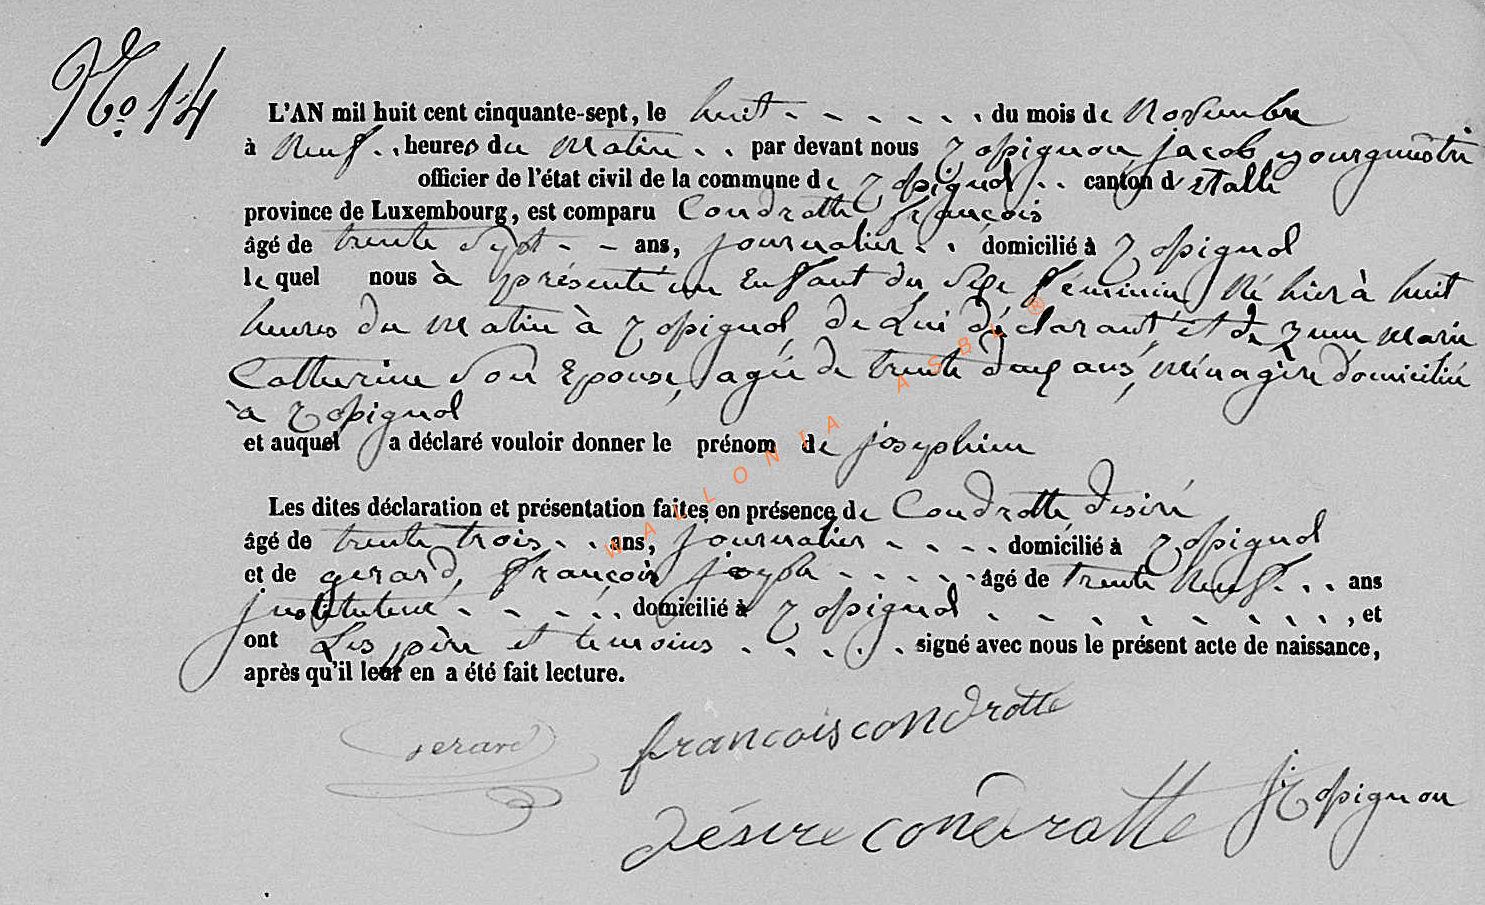 No. 14
L'AN mil huit cent cinquante-sept, le huit du mois de Novembre
à Neuf heures du Matin par devant nous jacob
officier de l'état civil de la commune de canton d'Etalle
province de Luxembourg, est comparu Condrotte françois
âgé de trente Sept ans, journalier domicilié à
le quel nous à présenté un Enfant du Sexe féminin Né hier à huit
heures du Matin à de Lui déclarant et de Marie
Catherine Son Epouse, agée de trente deux ans, Ménagère domiciliée
à
et auquel a déclaré vouloir donner le prénom de josephine
Les dites déclaration et présentation faites en présence de Condrotte désiré
âgé de trente trois ans, journalier domicilié à
et de gerard, françois joseph âgé de trente Neuf ans
instituteur domicilié à , et
ont Les père et temoins signé avec nous le présent acte de naissance,
après qu'il leur en a été fait lecture.
gerard
francois condrotte
désire condrotte
WALLONIA ASBL ®